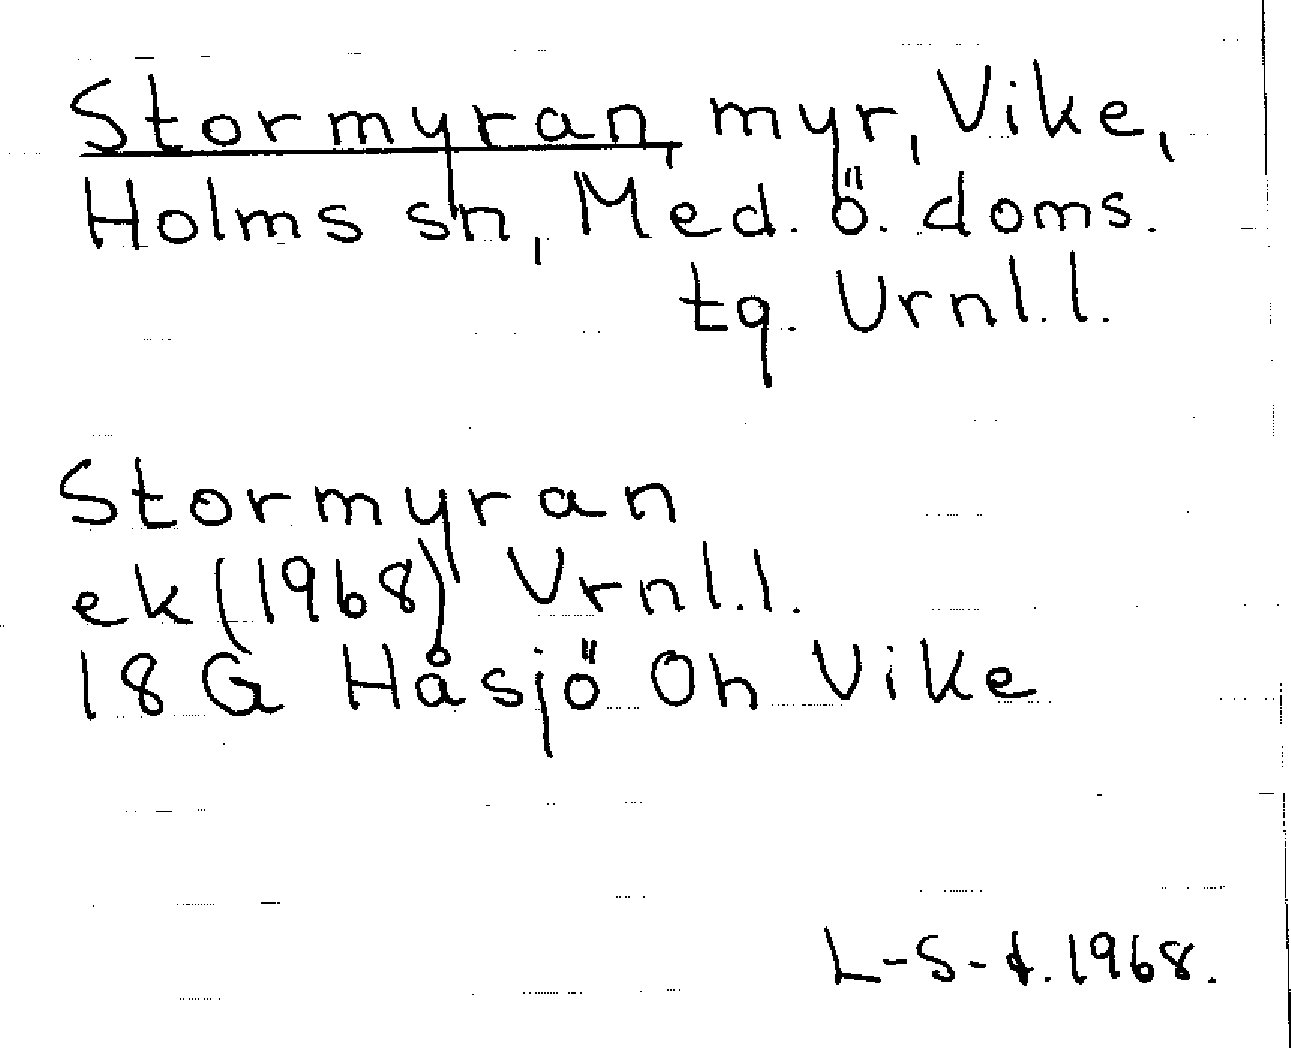 Stormyran, myr, Vike,
Holms sn, Med. ö. doms.
tg. Vrnl.l.
Stormyran
ek (1968) Vrnl.l.
18 G Håsjö Oh Vike
L-S-d. 1968.